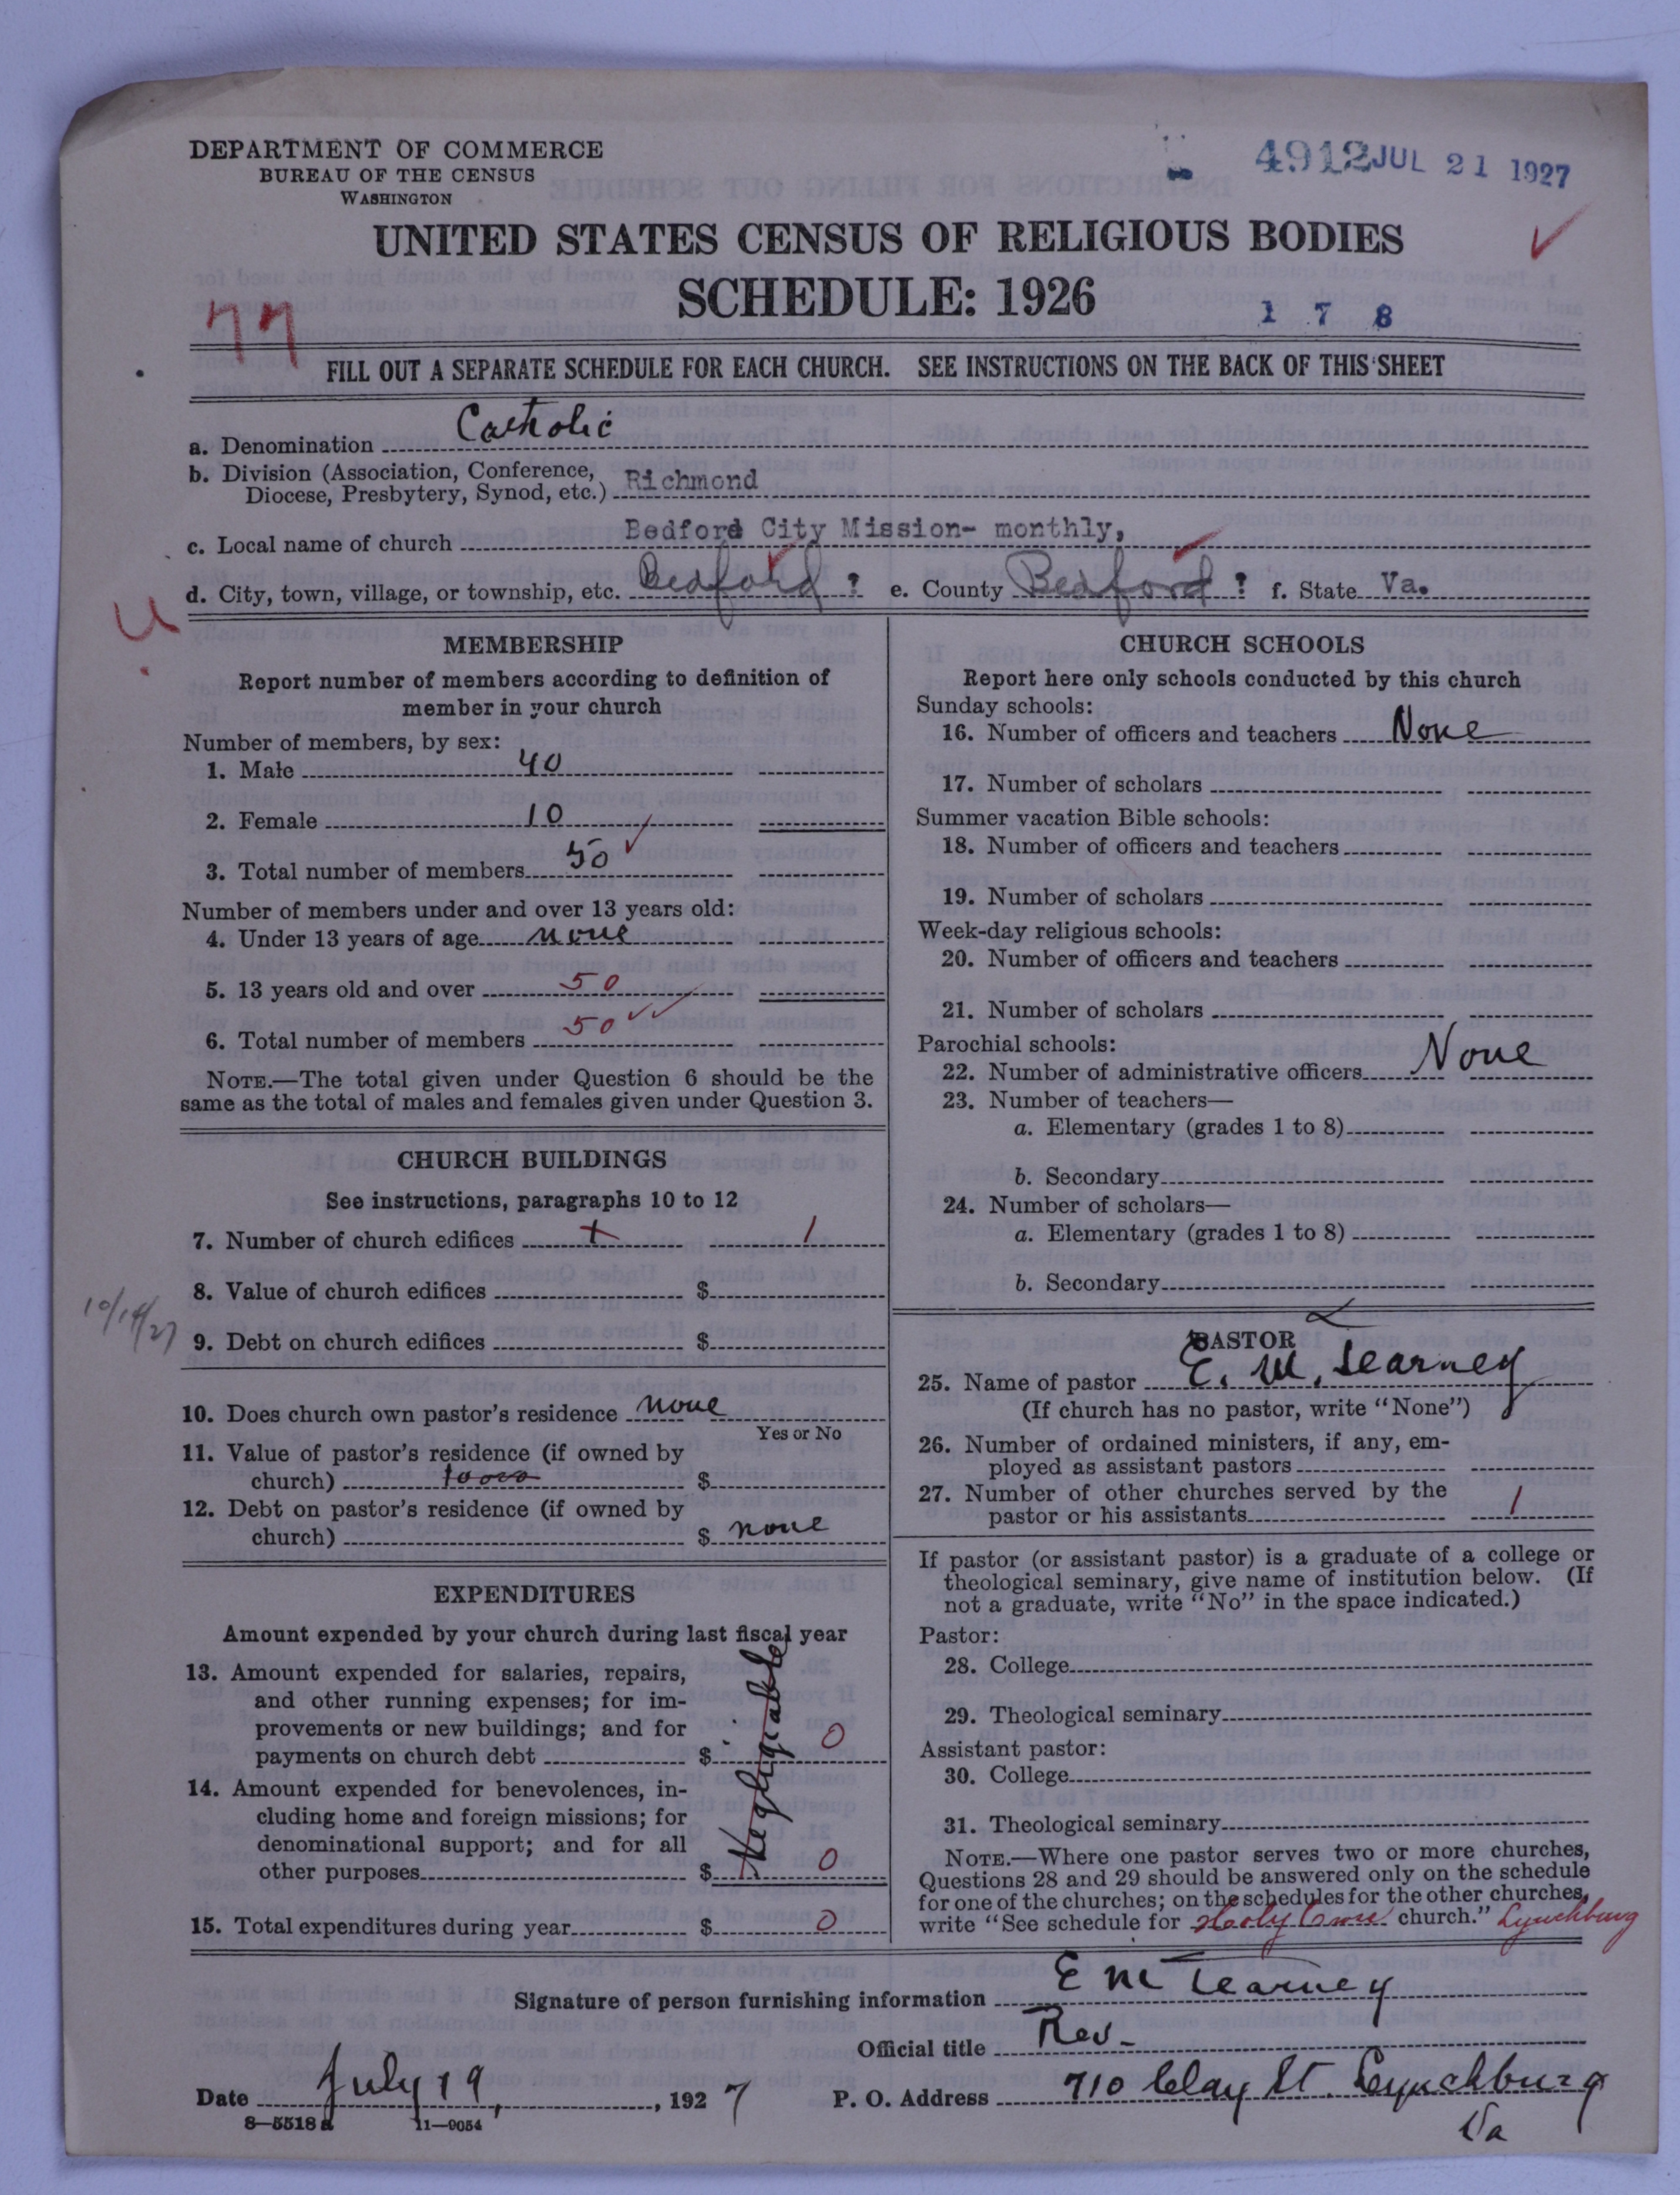 DEPARTMENT OF COMMERCE
BUREAU OF THE CENSUS
WASHINGTON
4912 JUL 21 1927
UNITED STATES CENSUS OF RELIGIOUS BODIES
SCHEDULE: 1926
77
1 7 8
FILL OUT A SEPARATE SCHEDULE FOR EACH CHURCH. SEE INSTRUCTIONS ON THE BACK OF THIS SHEET
a. Denomination Catholic
b. Division (Association, Conference,
Diocese, Presbytery, Synod, etc.) Richmond
c. Local name of church Bedford City Mission- monthly,
d. City, town, village, or township, etc. Bedford ? e. County Bedford ? f. State Va.
MEMBERSHIP
Report number of members according to definition of
member in your church
Number of members, by sex:
1. Male 40
2. Female 10
3. Total number of members 50
Number of members under and over 13 years old:
4. Under 13 years of age none
5. 13 years old and over 50
6. Total number of members 50
NOTE.—The total given under Question 6 should be the
same as the total of males and females given under Question 3.
CHURCH BUILDINGS
See instructions, paragraphs 10 to 12
7. Number of church edifices 1 1
8. Value of church edifices $
10/14/27
9. Debt on church edifices $
10. Does church own pastor's residence none
Yes or No
11. Value of pastor's residence (if owned by
church) 10000 $
12. Debt on pastor's residence (if owned by
church) $ none
EXPENDITURES
Amount expended by your church during last fiscal year
13. Amount expended for salaries, repairs,
and other running expenses; for im-
provements or new buildings; and for
payments on church debt $ 0
Negligiable
14. Amount expended for benevolences, in-
cluding home and foreign missions; for
denominational support; and for all
other purposes $ 0
15. Total expenditures during year $ 0
CHURCH SCHOOLS
Report here only schools conducted by this church
Sunday schools:
16. Number of officers and teachers None
17. Number of scholars
Summer vacation Bible schools:
18. Number of officers and teachers
19. Number of scholars
Week-day religious schools:
20. Number of officers and teachers
21. Number of scholars
Parochial schools:
22. Number of administrative officers None
23. Number of teachers—
a. Elementary (grades 1 to 8)
b. Secondary
24. Number of scholars—
a. Elementary (grades 1 to 8)
b. Secondary
PASTOR
25. Name of pastor E. M. Tearney
(If church has no pastor, write "None")
26. Number of ordained ministers, if any, em-
ployed as assistant pastors
27. Number of other churches served by the
pastor or his assistants 1
If pastor (or assistant pastor) is a graduate of a college or
theological seminary, give name of institution below. (If
not a graduate, write "No" in the space indicated.)
Pastor:
28. College
29. Theological seminary
Assistant pastor:
30. College
31. Theological seminary
NOTE.—Where one pastor serves two or more churches,
Questions 28 and 29 should be answered only on the schedule
for one of the churches; on the schedules for the other churches,
write "See schedule for Holy Cross church." Lynchburg
Signature of person furnishing information E M Tearney
Official title Rev-
Date July 19, 1927 P. O. Address 710 Clay St. Lynchburg
Va
8—5518 a 11—9054